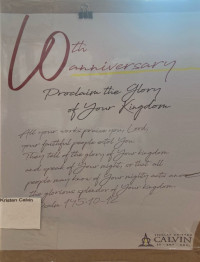 10th
anniversary
Proclaim the Glory
of Your Kingdom
All your works praise you, Lord
your faithful people extol You
They tell of the glory of Your kingdom
and speak of Your might, so that all
people may know of Your mighty acts and
the glorious splendor of Your kingdom.
Kristen Calvin
CALVIN